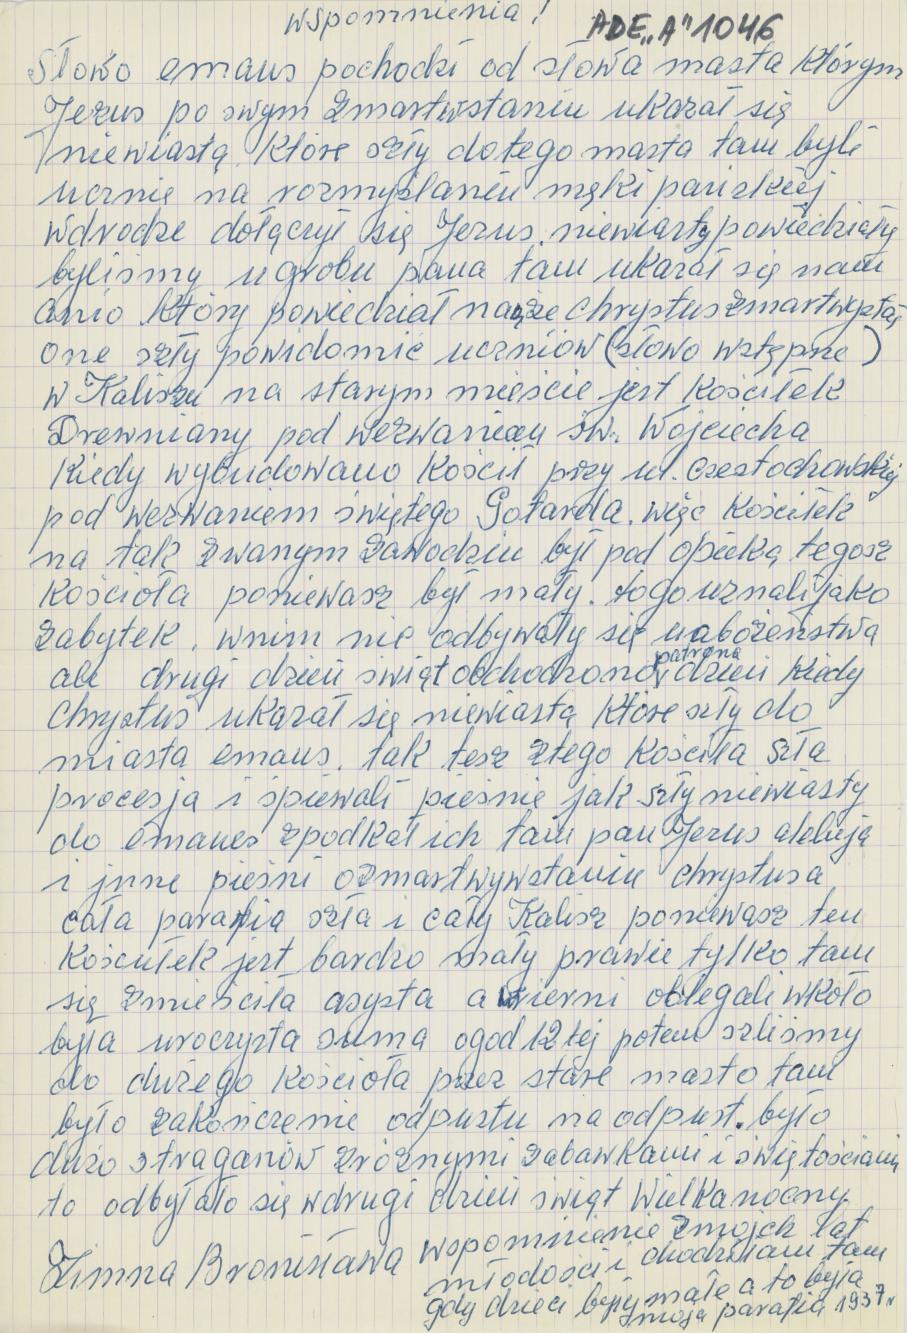 wspomnienia!
ADE „A" 1046
Słowo emaus pochodzi od słowa masta którym
Jezus po swym zmartwstaniu ukazał się
niewiastą. Które szły do tego masta tam byli
ucznie na rozmyślaniu męki panizkiej
wdrodze dołączył się Jezus. niewiasty powiedziały
byliśmy u grobu pana tam ukazał się nam
anio który powiedział nam że chrystus zmartwystał
one szły powidomić uczniów (słowo wstępne)
w Kaliszu na starym mieście jest Kościłek
Drewniany pod wezwaniem św. Wojciecha
Kiedy wybudowano Kościł przy ul. Czestochowskiej
pod wezwaniem świętego Gotarda. więc Kościłek
na tak zwanym zawodziu był pod opieką tegosz
Kościoła poniewasz był mały. togo uznali jako
zabytek. wnim nie odbywały się nabożeństwa
ale drugi dzień świąt obchodzono patrona dzień kiedy
Chrystus ukazał się niewiastą które szły do
miasta emaus. tak tesz ztego Kościła szła
procesja i śpiewali pieśnie jak szły niewiasty
do emaues zpodkał ich tam pan Jezus aleluja
i jnne pieśni ozmartwywstaniu chrystusa
cała parafia szła i cały Kalisz poniewasz ten
Kościułek jest bardzo mały prawie tylko tam
się zmieściła asysta a wierni oblegali wkoło
była uroczysta suma ogod 12tej potem szliśmy
do dużego Kościoła przez stare masto tam
było zakończenie odpustu na odpust. było
dużo straganów zróżnymi zabawkami i świętościami
to odbyłało się wdrugi dzień świąt Wielkanocny.
Zimna Bronisława wspomnienie zmojch lat
młodości i chodziłam tam
gdy dzieci były małe a to była
moja parafia 1937r